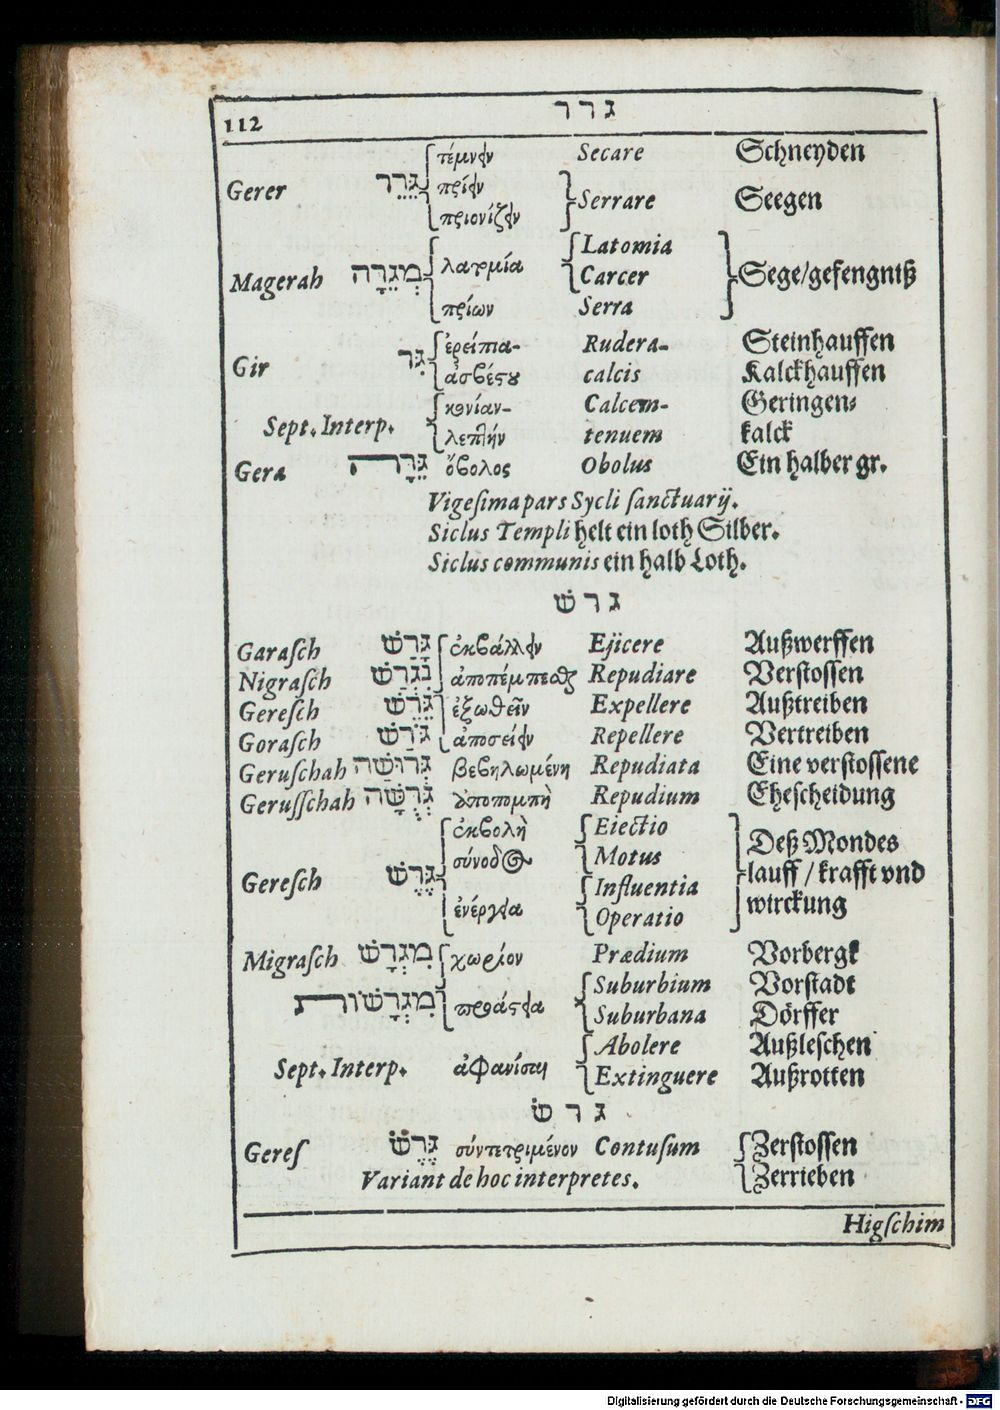 112 גרר
τέμνειν Secare Schneyden
Gerer גֵּרֵר πρίειν Serrare Seegen
πριονίζειν
Latomia
Magerah מְגֵרָה λατομία Carcer Sege/gefengniß
πρίων Serra
Gir גִּר ἐρείπια- Rudera- Steinhauffen
ἀσβέστου calcis Kalckhauffen
Sept. Interp. κονίαν- Calcem- Geringen⸗
λεπτὴν tenuem kalck
Gera גֵּרָה ὄβολος Obolus Ein halber gr.
Vigeſima pars Sycli ſanctuarij.
Siclus Templi helt ein loth Silber.
Siclus communis ein halb Loth.
גרשׁ
Garaſch גָּרַשׁ ἐκβάλλειν Ejicere Außwerffen
Nigraſch נִגְרַשׁ ἀποπέμπεσθαι Repudiare Verſtoſſen
Gereſch גֵּרֵשׁ ἐξωθεῖν Expellere Außtreiben
Goraſch גֹּרַשׁ ἀποσείειν Repellere Vertreiben
Geruſchah גְּרוּשָׁה βεβηλωμένη Repudiata Eine verſtoſſene
Geruſſchah גְּרֻשָׁה ἀποπομπὴ Repudium Eheſcheidung
ἐκβολὴ Eiectio Deß Mondes
σύνοδος Motus
Gereſch גֶּרֶשׁ Influentia lauff / krafft vnd
ἐνέργεια Operatio wirckung
Migraſch מִגְרָשׁ χωρίον Prædium Vorbergk
Suburbium Vorſtadt
מִגְרָשׁוֹת προάστεια Suburbana Dörffer
Abolere Außleſchen
Sept. Interp. ἀφανίσαι Extinguere Außrotten
גרשׂ
Gereſ גֶּרֶשׂ σύντετριμένον Contuſum Zerſtoſſen
Variant de hoc interpretes. Zerrieben
Higſchim
Digitalisierung gefördert durch die Deutsche Forschungsgemeinschaft - DFG